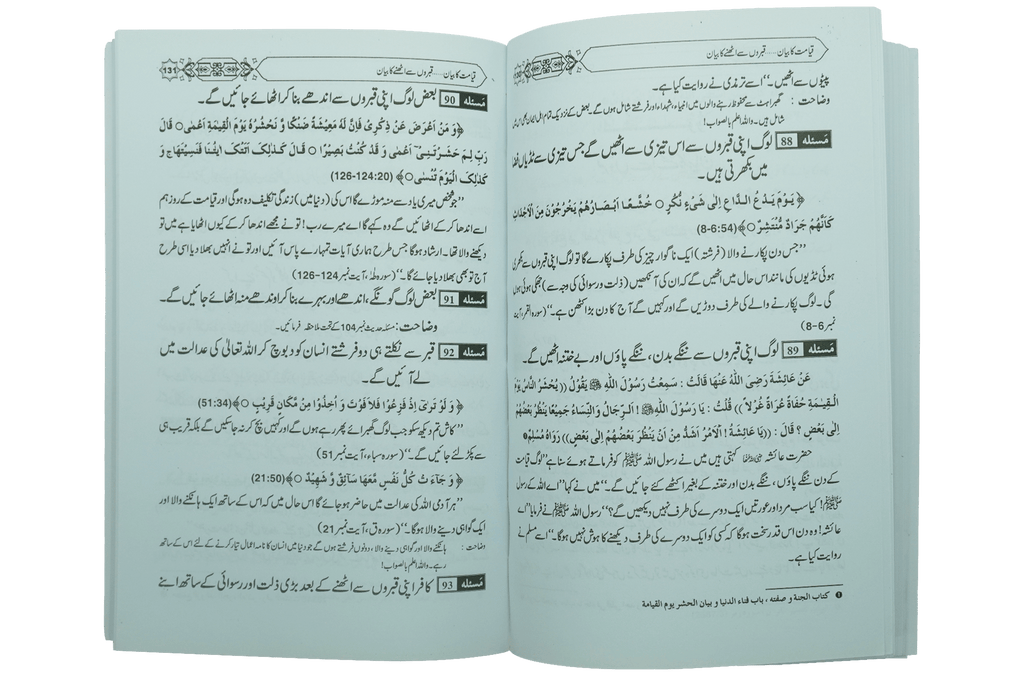 قیامت کا بیان.....قبروں سے اٹھنے کا بیان
پیٹوں سے اٹھیں۔‘‘ اسے ترمذی نے روایت کیا ہے۔
وضاحت : گھبراہٹ سے محفوظ رہنے والوں میں انبیاء، شہداء اور فرشتے شامل ہوں گے۔ بعض کے نزدیک تمام اہل ایمان بھی اس میں
شامل ہیں۔ واللہ اعلم بالصواب!
مسئلہ 88 لوگ اپنی قبروں سے اس تیزی سے اٹھیں گے جس تیزی سے ٹڈیاں فضا
میں بکھرتی ہیں۔
﴿ یَوْمَ یَدْعُ الدَّاعِ اِلٰی شَیْءٍ نُّکُرٍ ○ خُشَّعًا اَبْصَارُھُمْ یَخْرُجُوْنَ مِنَ الْاَجْدَاثِ
کَاَنَّھُمْ جَرَادٌ مُّنْتَشِرٌ ○﴾ (54:6-8)
’’جس دن پکارنے والا (فرشتہ) ایک ناگوار چیز کی طرف پکارے گا تو لوگ اپنی قبروں سے بکھری
ہوئی ٹڈیوں کی مانند اس حال میں اٹھیں گے کہ ان کی آنکھیں (ذلت و رسوائی کی وجہ سے) جھکی ہوئی ہوں
گی۔ لوگ پکارنے والے کی طرف دوڑیں گے اور کہیں گے آج کا دن بڑا کٹھن ہے۔‘‘ (سورہ القمر، آیت
نمبر 6-8)
مسئلہ 89 لوگ اپنی قبروں سے ننگے بدن، ننگے پاؤں اور بے ختنہ اٹھیں گے۔
عَنْ عَائِشَةَ رَضِیَ اللّٰہُ عَنْھَا قَالَتْ : سَمِعْتُ رَسُوْلَ اللّٰہِ ﷺ یَقُوْلُ (( یُحْشَرُ النَّاسُ یَوْمَ
الْقِیَمَةِ حُفَاةً عُرَاةً غُرْلاً )) قُلْتُ : یَا رَسُوْلَ اللّٰہِ ﷺ ! اَلرِّجَالُ وَالنِّسَاءُ جَمِیْعًا یَنْظُرُ بَعْضُھُمْ
اِلٰی بَعْضٍ ؟ قَالَ : ((یَا عَائِشَةُ ! اَلْاَمْرُ اَشَدُّ مِنْ اَنْ یَنْظُرَ بَعْضُھُمْ اِلٰی بَعْضٍ)) رَوَاہُ مُسْلِمٌ ❶
حضرت عائشہ رضی اللہ عنہا کہتی ہیں میں نے رسول اللہ ﷺ کو فرماتے ہوئے سنا ہے ’’لوگ قیامت
کے دن ننگے پاؤں، ننگے بدن اور ختنہ کے بغیر اکٹھے کئے جائیں گے۔‘‘ میں نے کہا ’’اے اللہ کے رسول
ﷺ! کیا سب مرد اور عورتیں ایک دوسرے کی طرف نہیں دیکھیں گے؟‘‘ رسول اللہ ﷺ نے فرمایا ’’اے
عائشہ! وہ دن اس قدر سخت ہوگا کہ کسی کو ایک دوسرے کی طرف دیکھنے کا ہوش نہیں ہوگا۔‘‘ اسے مسلم نے
روایت کیا ہے۔
❶ کتاب الجنة و صفته ، باب فناء الدنیا و بیان الحشر یوم القیامة
قیامت کا بیان.....قبروں سے اٹھنے کا بیان 131
مسئلہ 90 بعض لوگ اپنی قبروں سے اندھے بنا کر اٹھائے جائیں گے۔
﴿وَ مَنْ اَعْرَضَ عَنْ ذِکْرِیْ فَاِنَّ لَہٗ مَعِیْشَةً ضَنْکًا وَّ نَحْشُرُہٗ یَوْمَ الْقِیٰمَةِ اَعْمٰی ○ قَالَ
رَبِّ لِمَ حَشَرْتَنِیْٓ اَعْمٰی وَ قَدْ کُنْتُ بَصِیْرًا ○ قَالَ کَذٰلِکَ اَتَتْکَ اٰیٰتُنَا فَنَسِیْتَھَا ج وَ
کَذٰلِکَ الْیَوْمَ تُنْسٰی ○﴾ (20:124-126)
’’جو شخص میری یاد سے منہ موڑے گا اس کی (دنیا میں) زندگی تکلیف دہ ہوگی اور قیامت کے روز ہم
اسے اندھا کر کے اٹھائیں گے وہ کہے گا اے میرے رب! تو نے مجھے اندھا کر کے کیوں اٹھایا ہے میں تو
دیکھنے والا تھا۔ ارشاد ہوگا جس طرح ہماری آیات تمہارے پاس آئیں اور تو نے انہیں بھلا دیا اسی طرح
آج تو بھی بھلا دیا جائے گا۔‘‘ (سورہ طٰہٰ، آیت نمبر 124-126)
مسئلہ 91 بعض لوگ گونگے، اندھے اور بہرے بنا کر اوندھے منہ اٹھائے جائیں گے۔
وضاحت: مسئلہ حدیث نمبر 104 کے تحت ملاحظہ فرمائیں۔
مسئلہ 92 قبر سے نکلتے ہی دو فرشتے انسان کو دبوچ کر اللہ تعالیٰ کی عدالت میں
لے آئیں گے۔
﴿ وَ لَوْ تَرٰٓی اِذْ فَزِعُوْا فَلاَ فَوْتَ وَ اُخِذُوْا مِنْ مَّکَانٍ قَرِیْبٍ ○﴾ (34:51)
’’کاش تم دیکھ سکو جب لوگ گھبرائے پھر رہے ہوں گے اور کہیں بچ کر نہ جا سکیں گے بلکہ قریب ہی
سے پکڑ لئے جائیں گے۔‘‘ (سورہ سباء، آیت نمبر 51)
﴿ وَ جَآءَتْ کُلُّ نَفْسٍ مَّعَھَا سَآئِقٌ وَّ شَھِیْدٌ ○﴾ (50:21)
’’ہر آدمی اللہ کی عدالت میں حاضر ہو جائے گا اس حال میں کہ اس کے ساتھ ایک ہانکنے والا اور
ایک گواہی دینے والا ہوگا۔‘‘ (سورہ ق، آیت نمبر 21)
وضاحت : ہانکنے والا اور گواہی دینے والا، دونوں فرشتے ہوں گے جو دنیا میں انسان کا نامہ اعمال تیار کرنے کے لئے اس کے ساتھ
رہے۔ واللہ اعلم بالصواب!
مسئلہ 93 کافر اپنی قبروں سے اٹھنے کے بعد بڑی ذلت اور رسوائی کے ساتھ اپنے